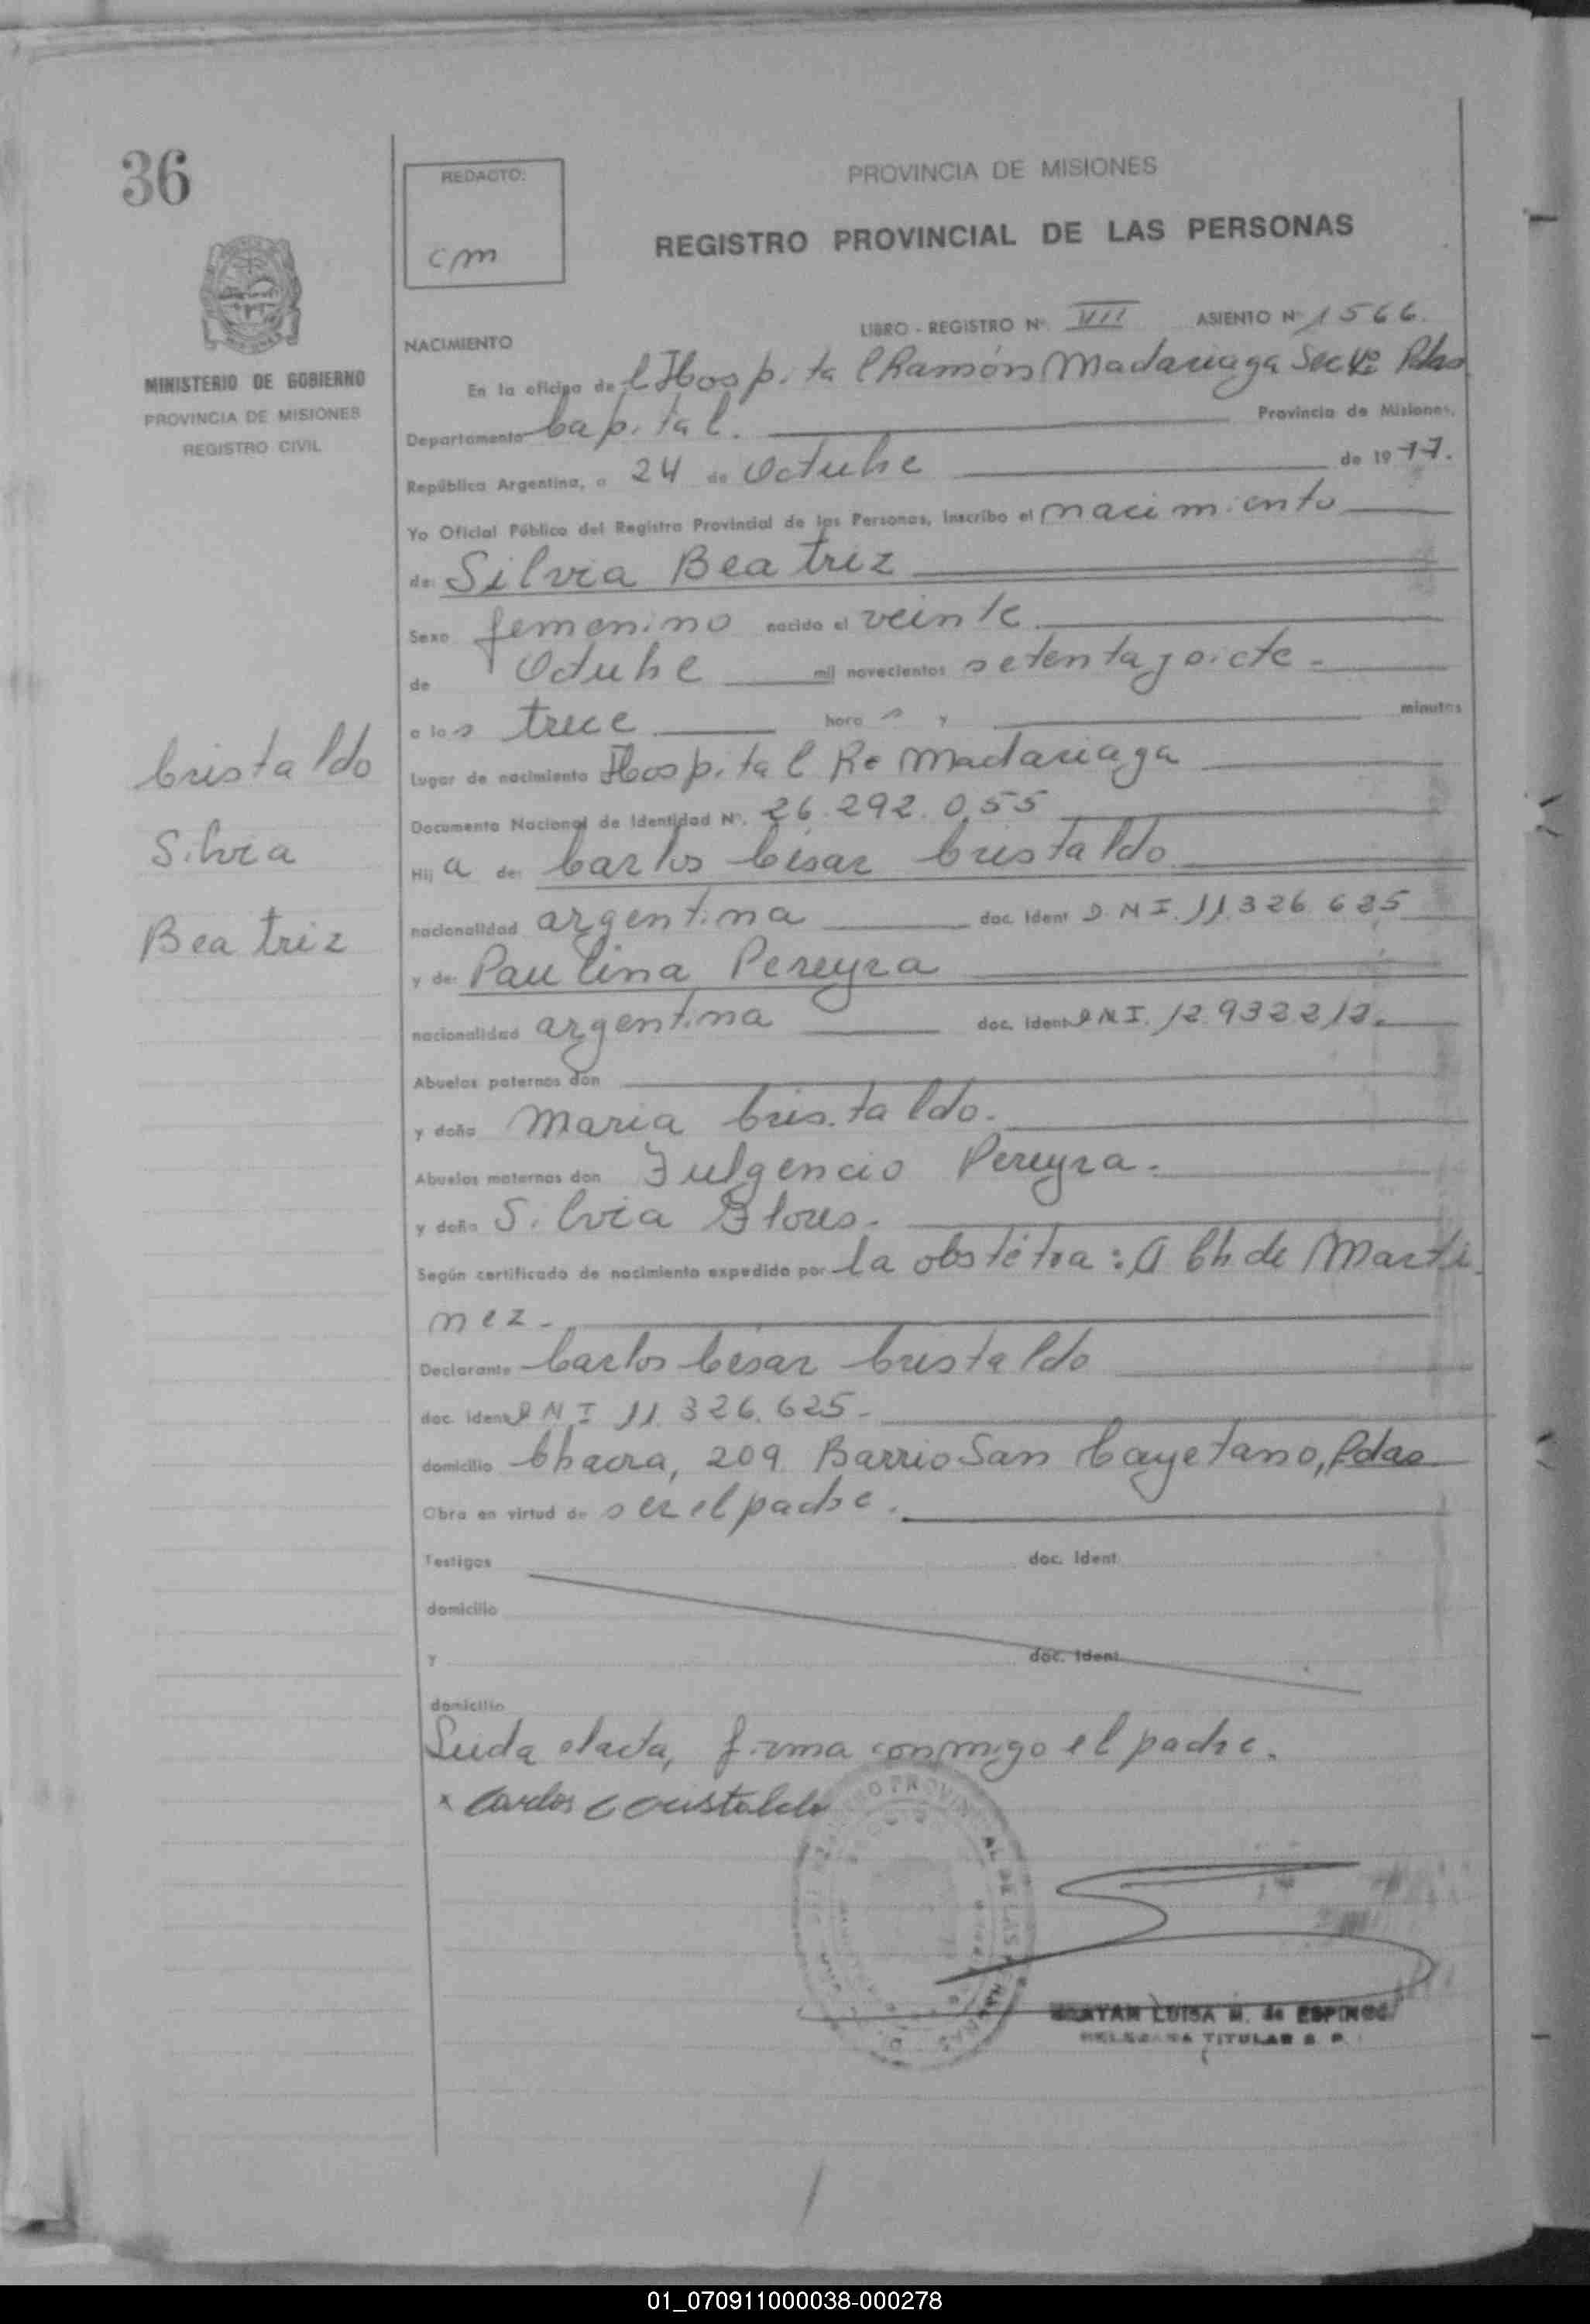 36
REDACTO:
cm
PROVINCIA DE MISIONES
REGISTRO PROVINCIAL DE LAS PERSONAS
MINISTERIO DE GOBIERNO
PROVINCIA DE MISIONES
REGISTRO CIVIL
LIBRO - REGISTRO Nº VII ASIENTO Nº 1566.
NACIMIENTO
En la oficina del Hospital Ramón Madariaga Secc Pdas
Departamento Capital. Provincia de Misiones,
República Argentina, a 24 de Octubre de 1977.
Yo Oficial Público del Registro Provincial de las Personas, inscribo el nacimiento
de: Silvia Beatriz
Sexo femenino nacido el veinte
de Octubre mil novecientos setenta y siete.
a las trece horas y minutos
Lugar de nacimiento Hospital R. Madariaga
Documento Nacional de Identidad Nº. 26.292.055
Hija de: Carlos César Cristaldo
nacionalidad argentina doc. Ident D.N.I. 11.326.625
y de: Paulina Pereyra
nacionalidad argentina doc. Ident D.N.I. 12.932.212.
Abuelos paternos don
y doña Maria Cristaldo.
Abuelos maternos don Fulgencio Pereyra.
y doña Silvia Flores.
Según certificado de nacimiento expedido por la obstétra: A Ch. de Marti
nez.
Declarante Carlos César Cristaldo
doc. Ident D N I 11.326.625.
domicilio Chacra, 209 Barrio San Cayetano, Pdas
Obra en virtud de ser el padre.
Testigos doc. Ident.
domicilio
Y doc. Ident.
domicilio
Leida el acta, firma conmigo el padre.
x Carlos C Cristaldo
Cristaldo
Silvia
Beatriz
LUISA M. de ESPINOS
TITULAR R. P.
01_070911000038-000278